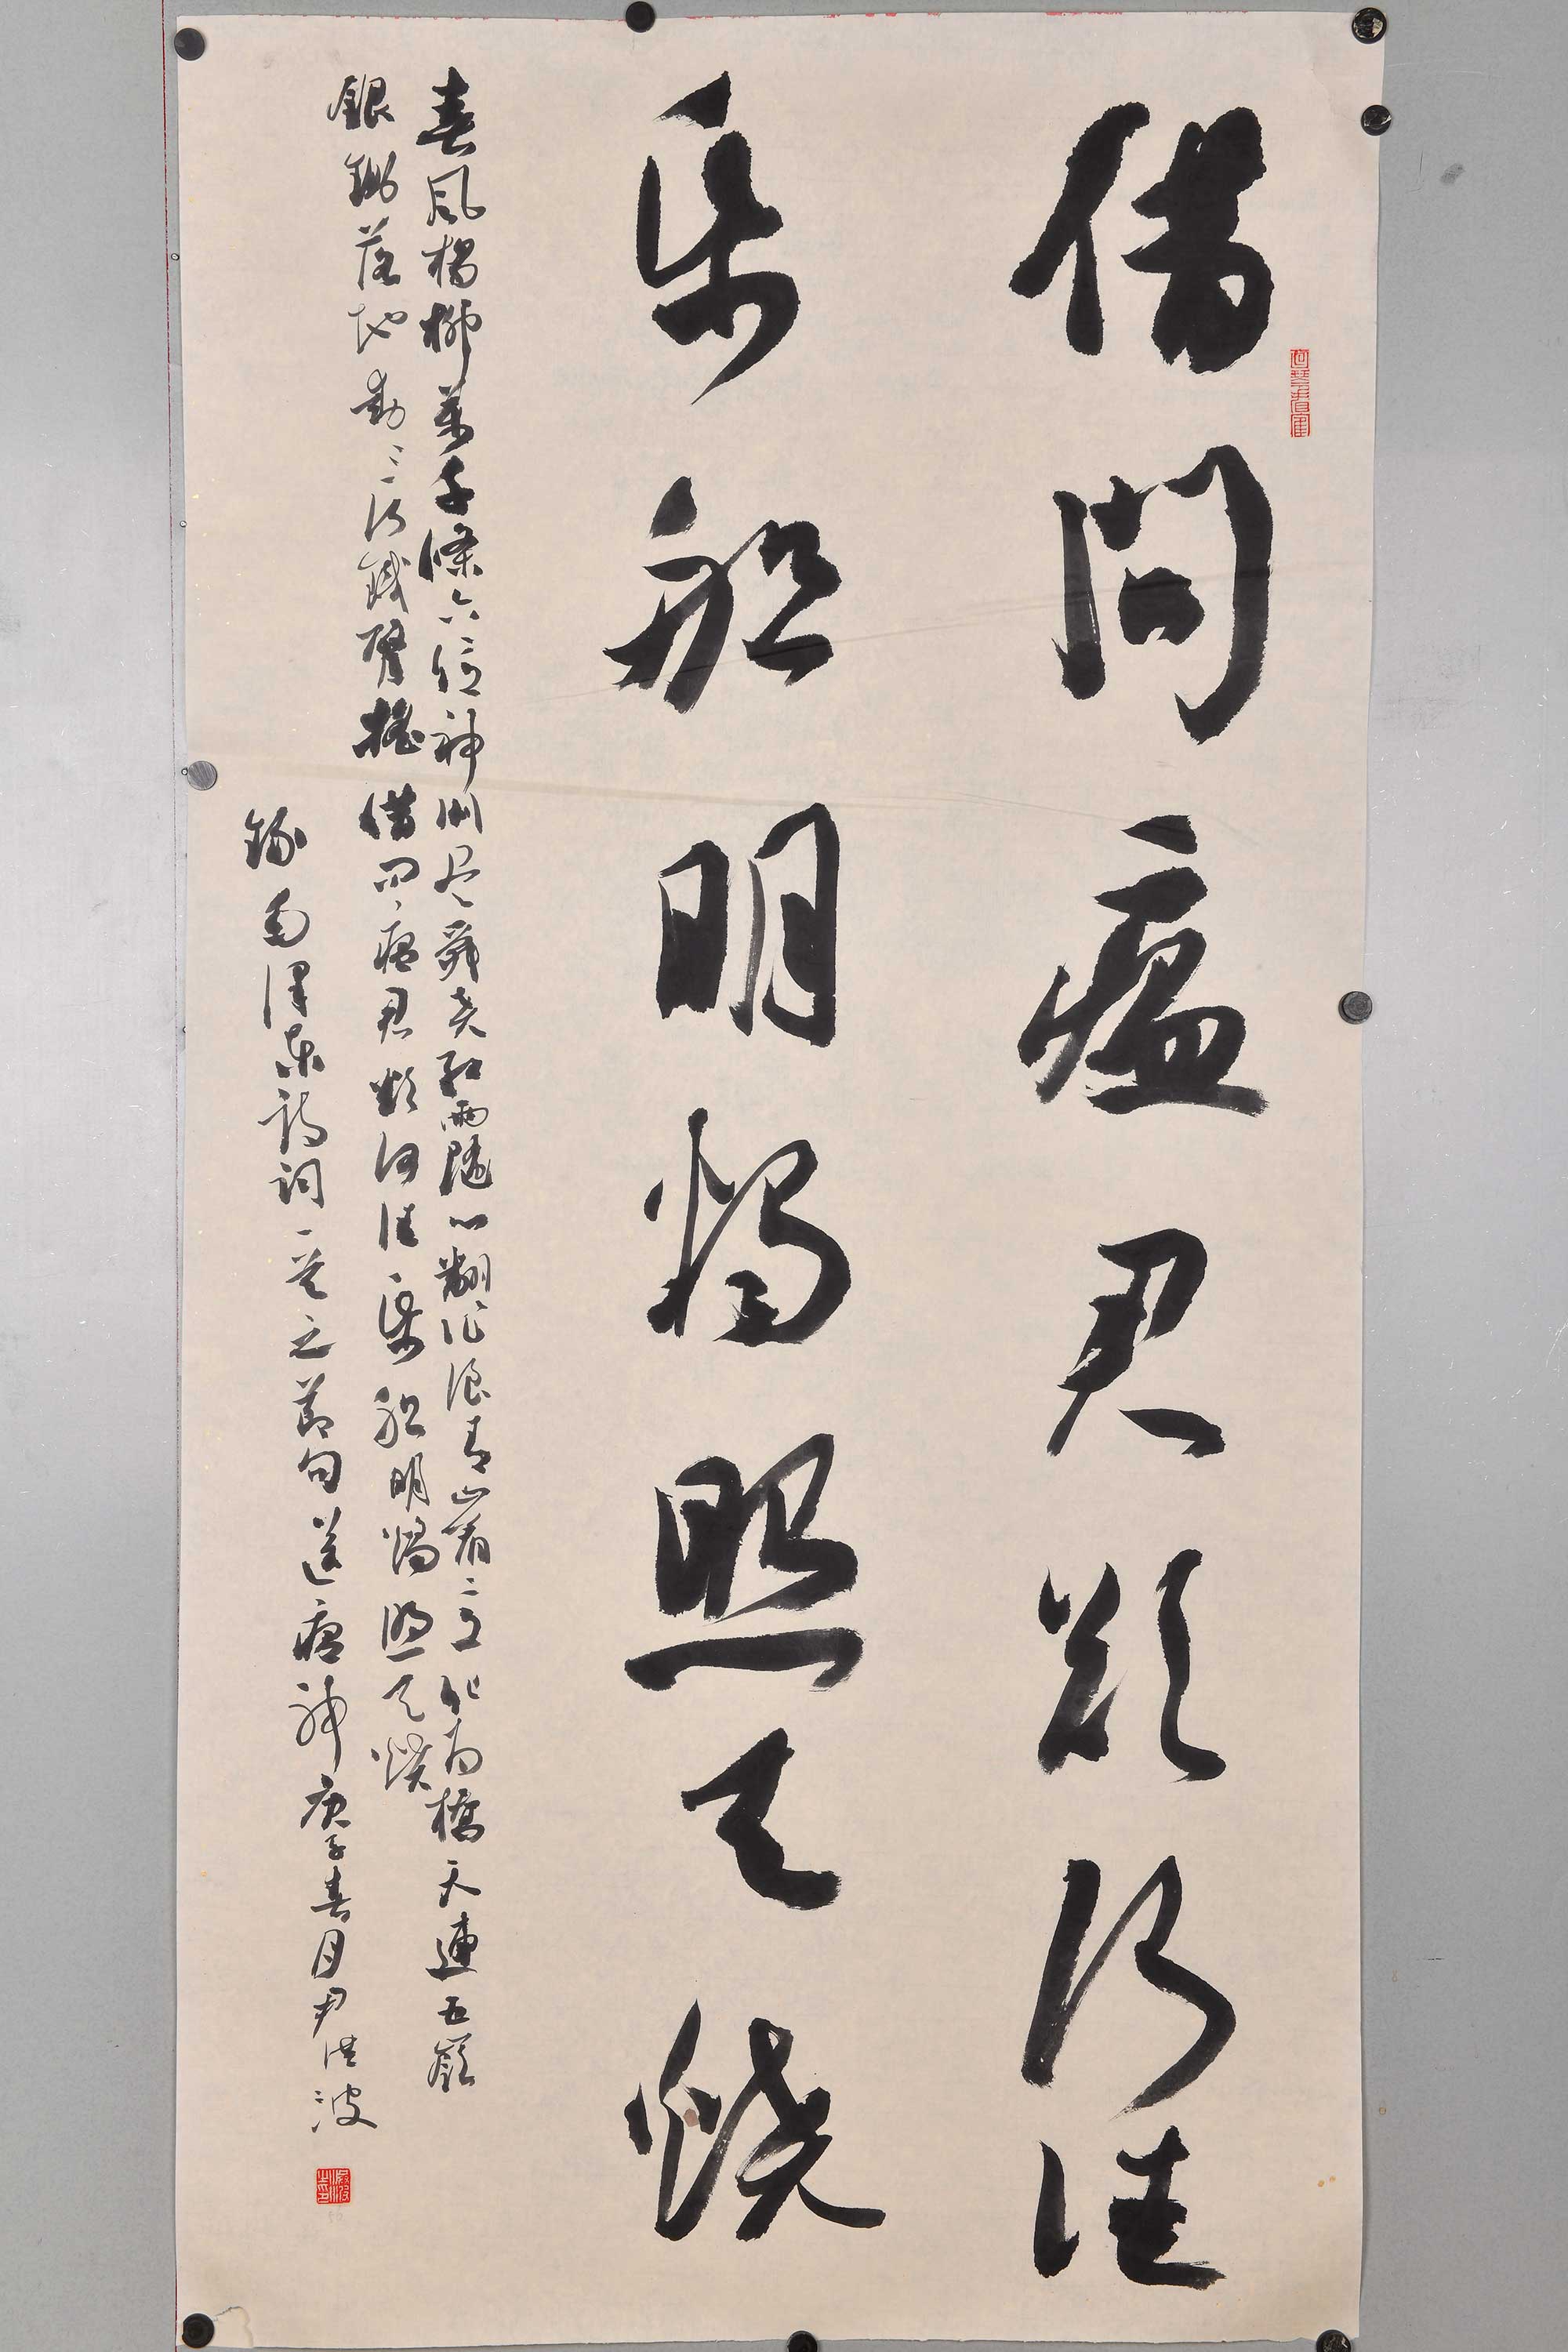 借问瘟君欲何往
纸船明烛照天烧
春風楊柳萬千條六億神州尽舜尧红雨隨心翻作浪青山着意化为橋天連五嶺
銀鋤落地動三河鐵臂搖借问瘟君欲何往纸船明烛照天烧
錄毛泽东詩词一首之节句送瘟神庚子春月尹洪波